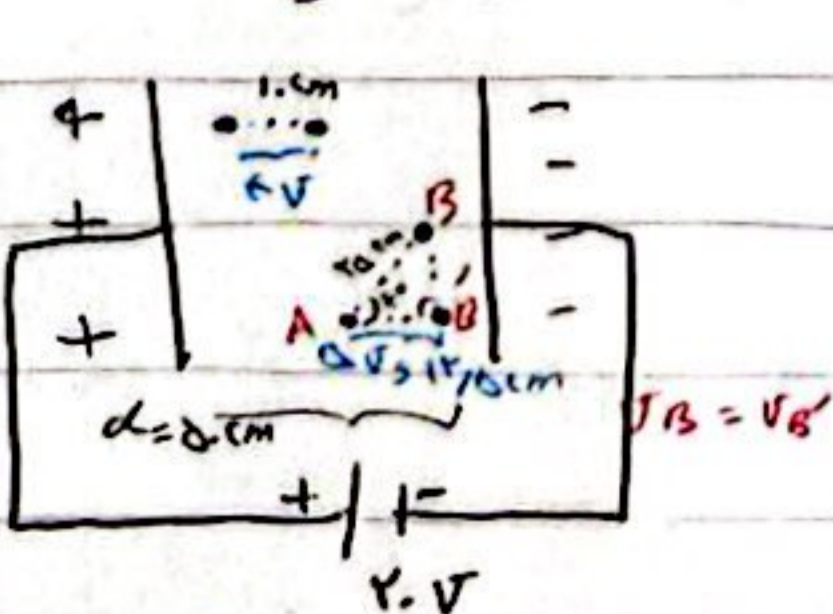 + -
۱۰cm
-
۴V
+ B -
۲۵cm
A B′
+ -
۵V, ۱۲٫۵cm
d=۵۰cm VB = VB′
+ -
۲۰V